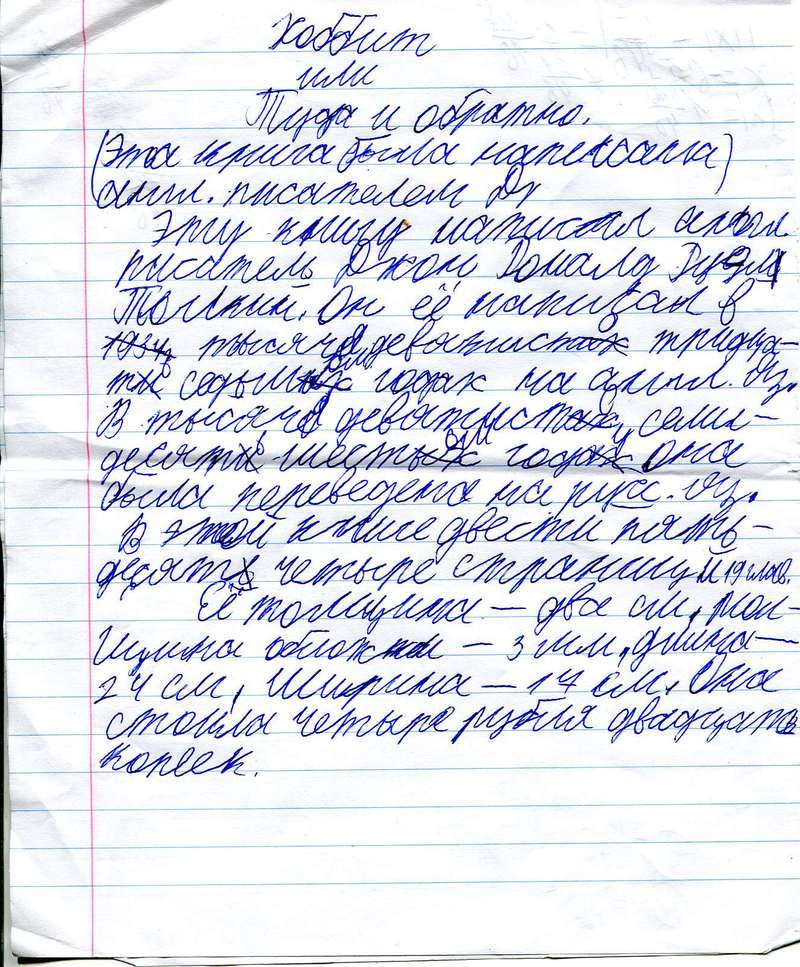 Хоббит
или
Туда и обратно.
(Эта книга была написана)
англ. писателем Дж
Эту книгу написал англ.
писатель Джон Роналд Руэл
Толкин. Он её написал в
1937 тысяча девятистах тридца-
ти седьмых годах на англ. яз.
В тысяча девятистах семи-
десяти шестых годах она
была переведена на русс. яз.
В этой книге двести пять-
десят четыре страницы и 19 глав.
Её толщина — два см, тол-
щина обложки — 3 мм, длина —
24 см, ширина — 17 см. Она
стоила четыре рубля двадцать
копеек.